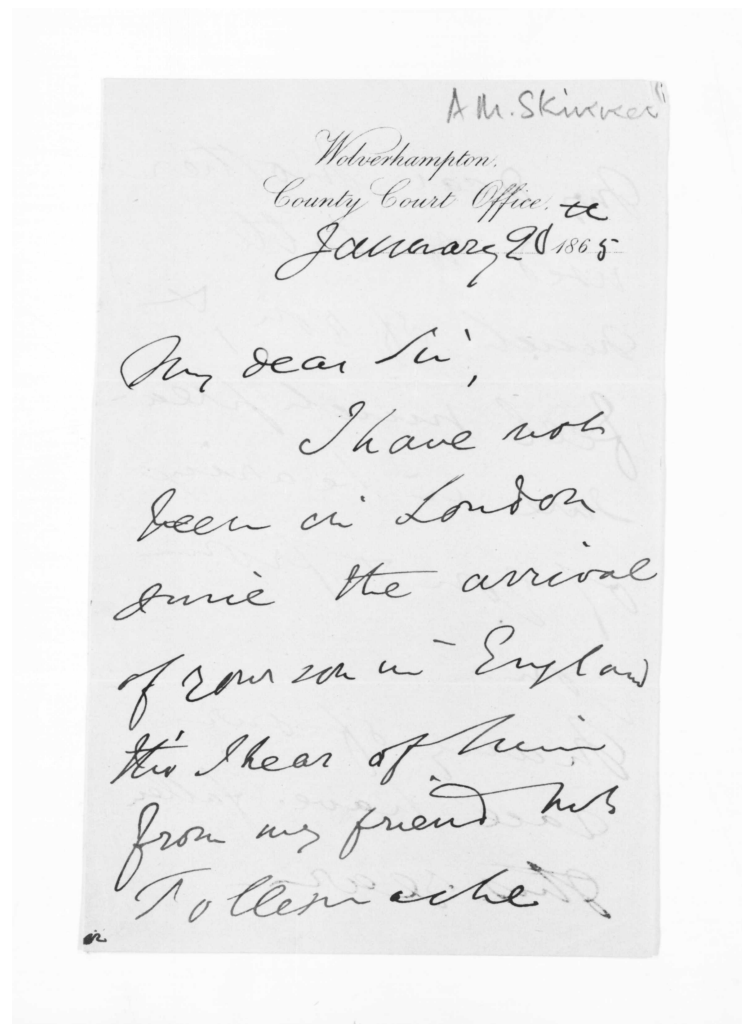 A M. Skinner
Wolverhampton.
County Court Office.
January 20th 1865
My dear Sir,
I have not
been in London
since the arrival
of your son in England
tho' I hear of him
from my friend Mrs
Tollemache